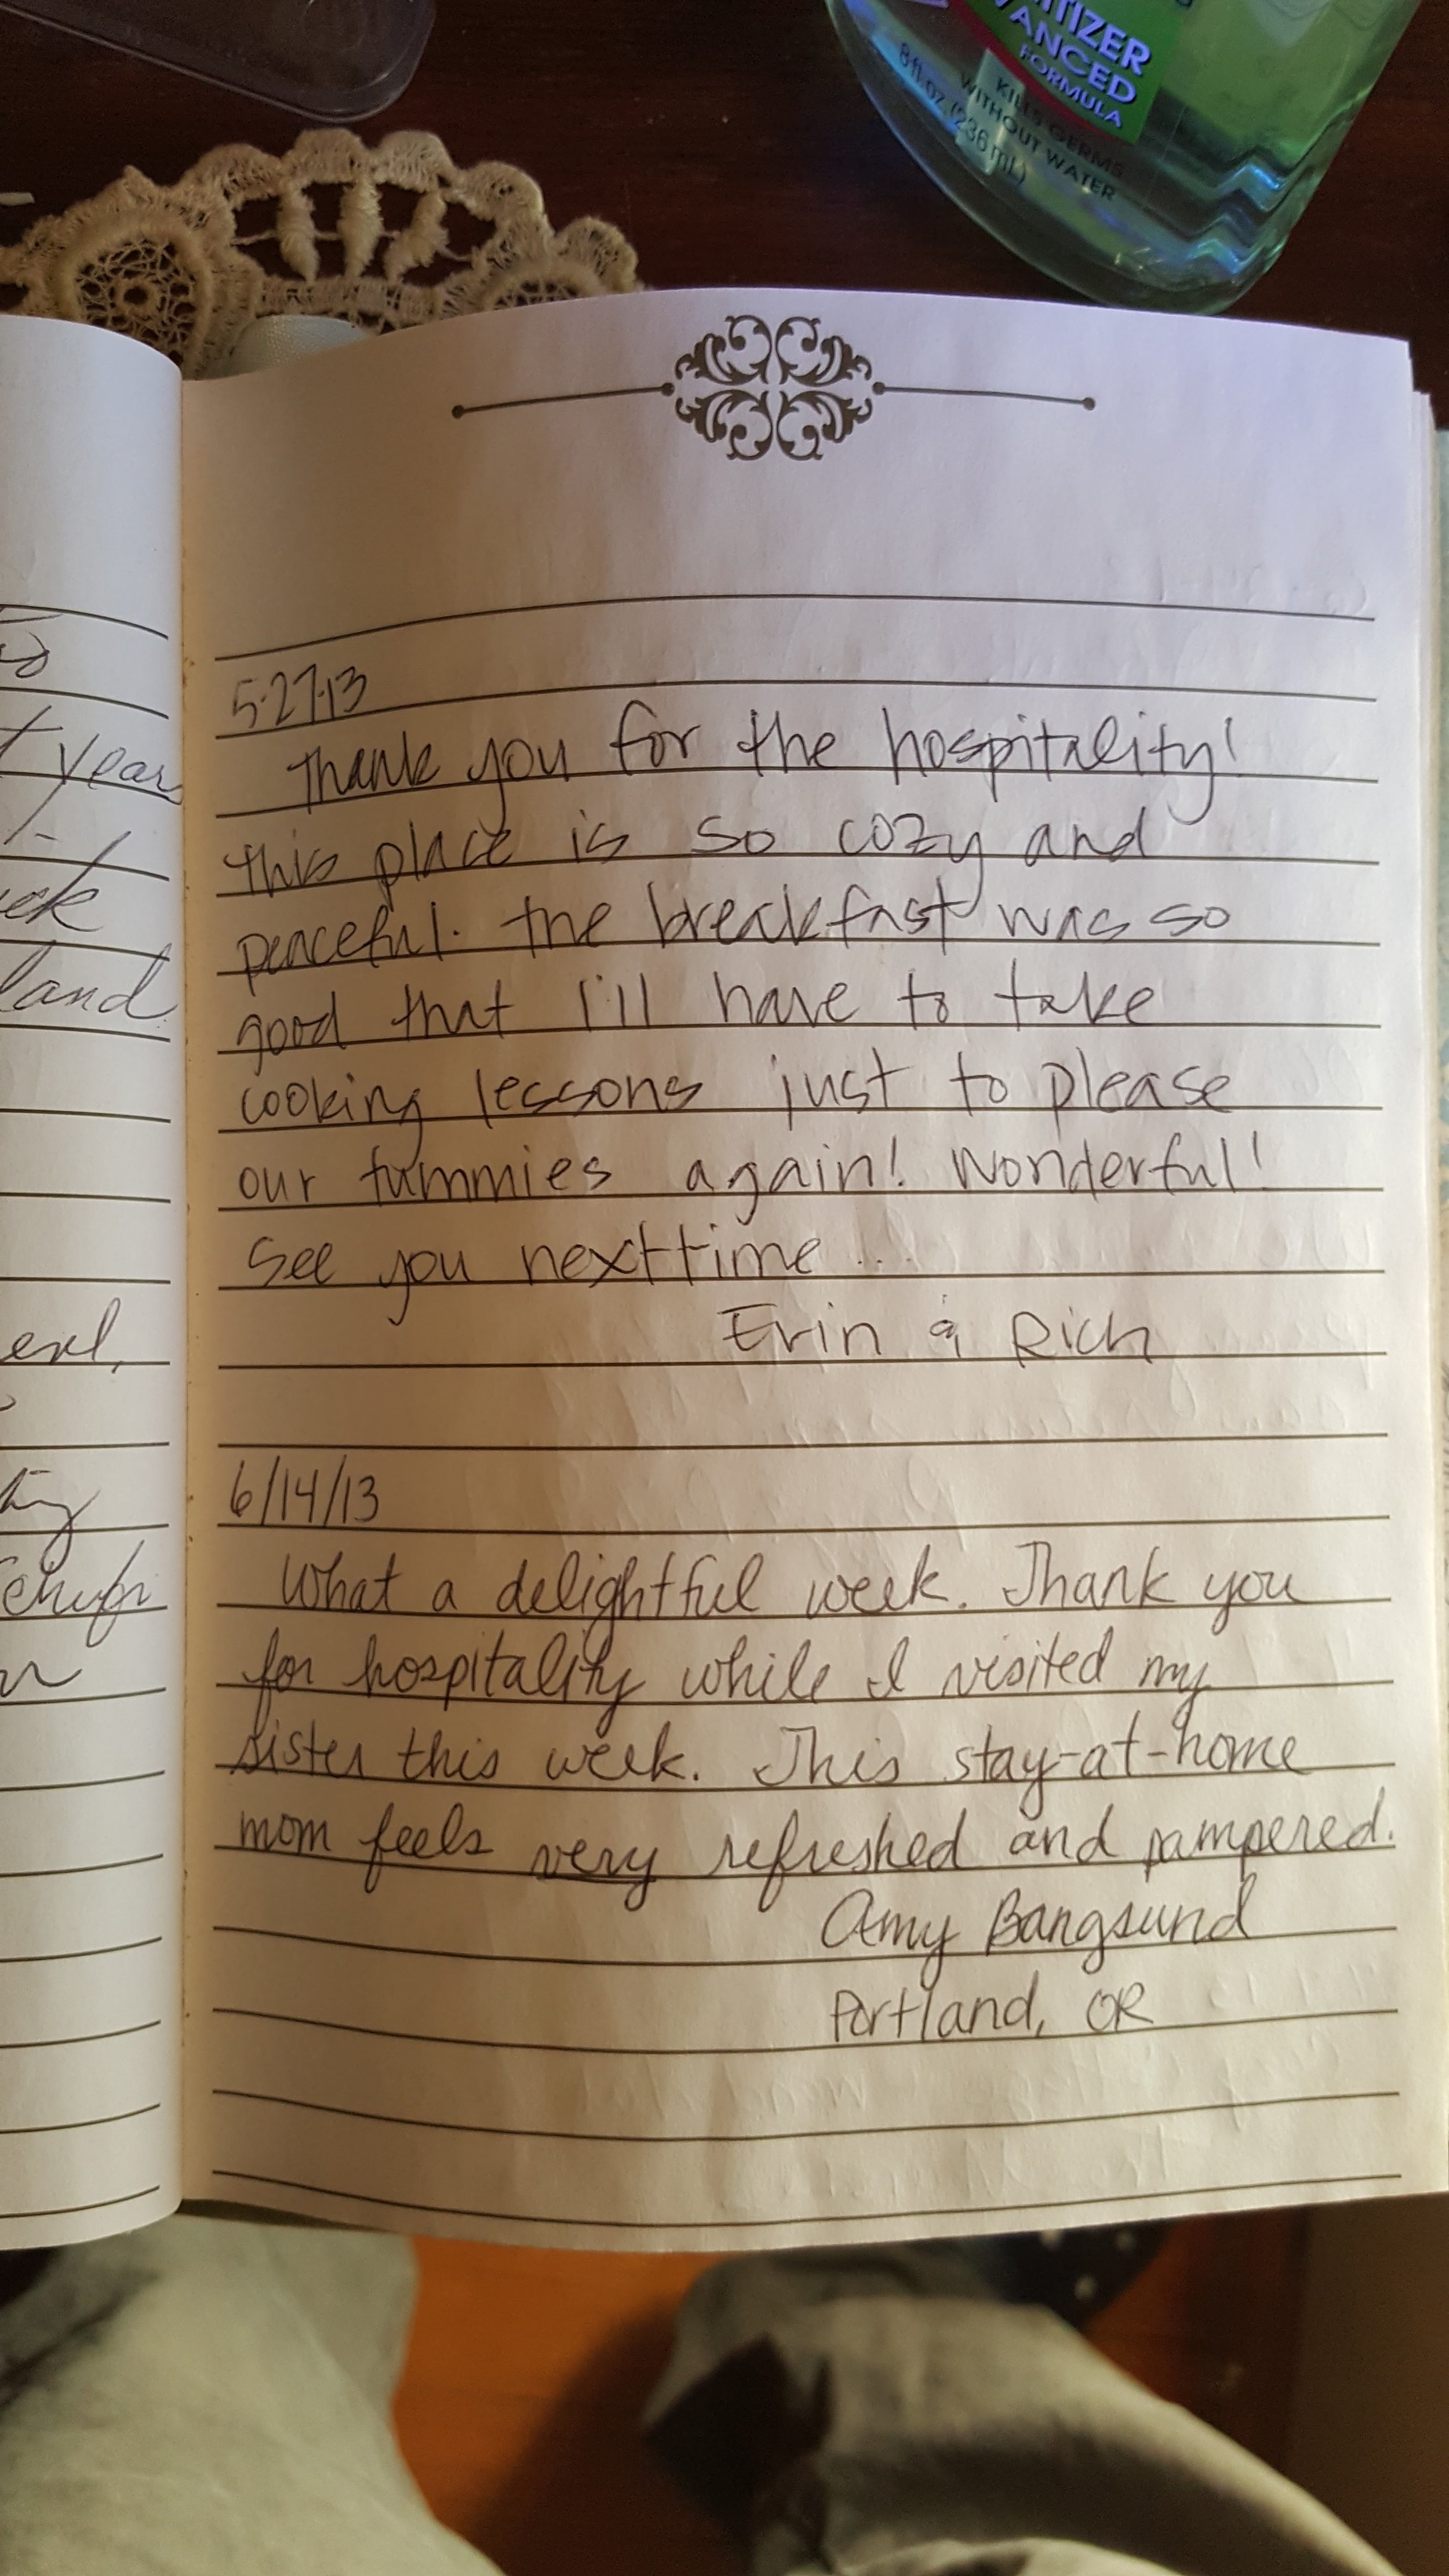 ITIZER
VANCED
FORMULA
KILLS GERMS
WITHOUT WATER
8 fl oz (236 mL)
year
land
5·27·13
Thank you for the hospitality!
this place is so cozy and
peaceful. the breakfast was so
good that I'll have to take
cooking lessons just to please
our tummies again! Wonderful!
See you next time...
Erin & Rich
6/14/13
What a delightful week. Thank you
for hospitality while I visited my
sister this week. This stay-at-home
mom feels very refreshed and pampered.
Amy Bangsund
Portland, OR